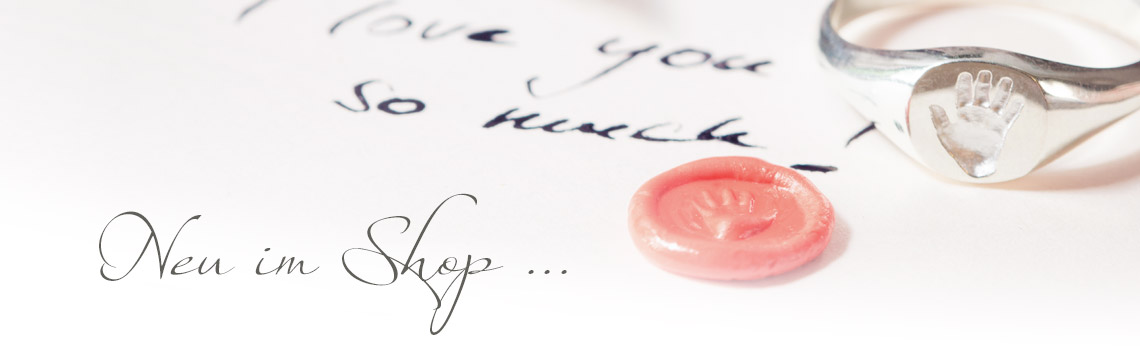 I love you
so much _ !
Neu im Shop ...